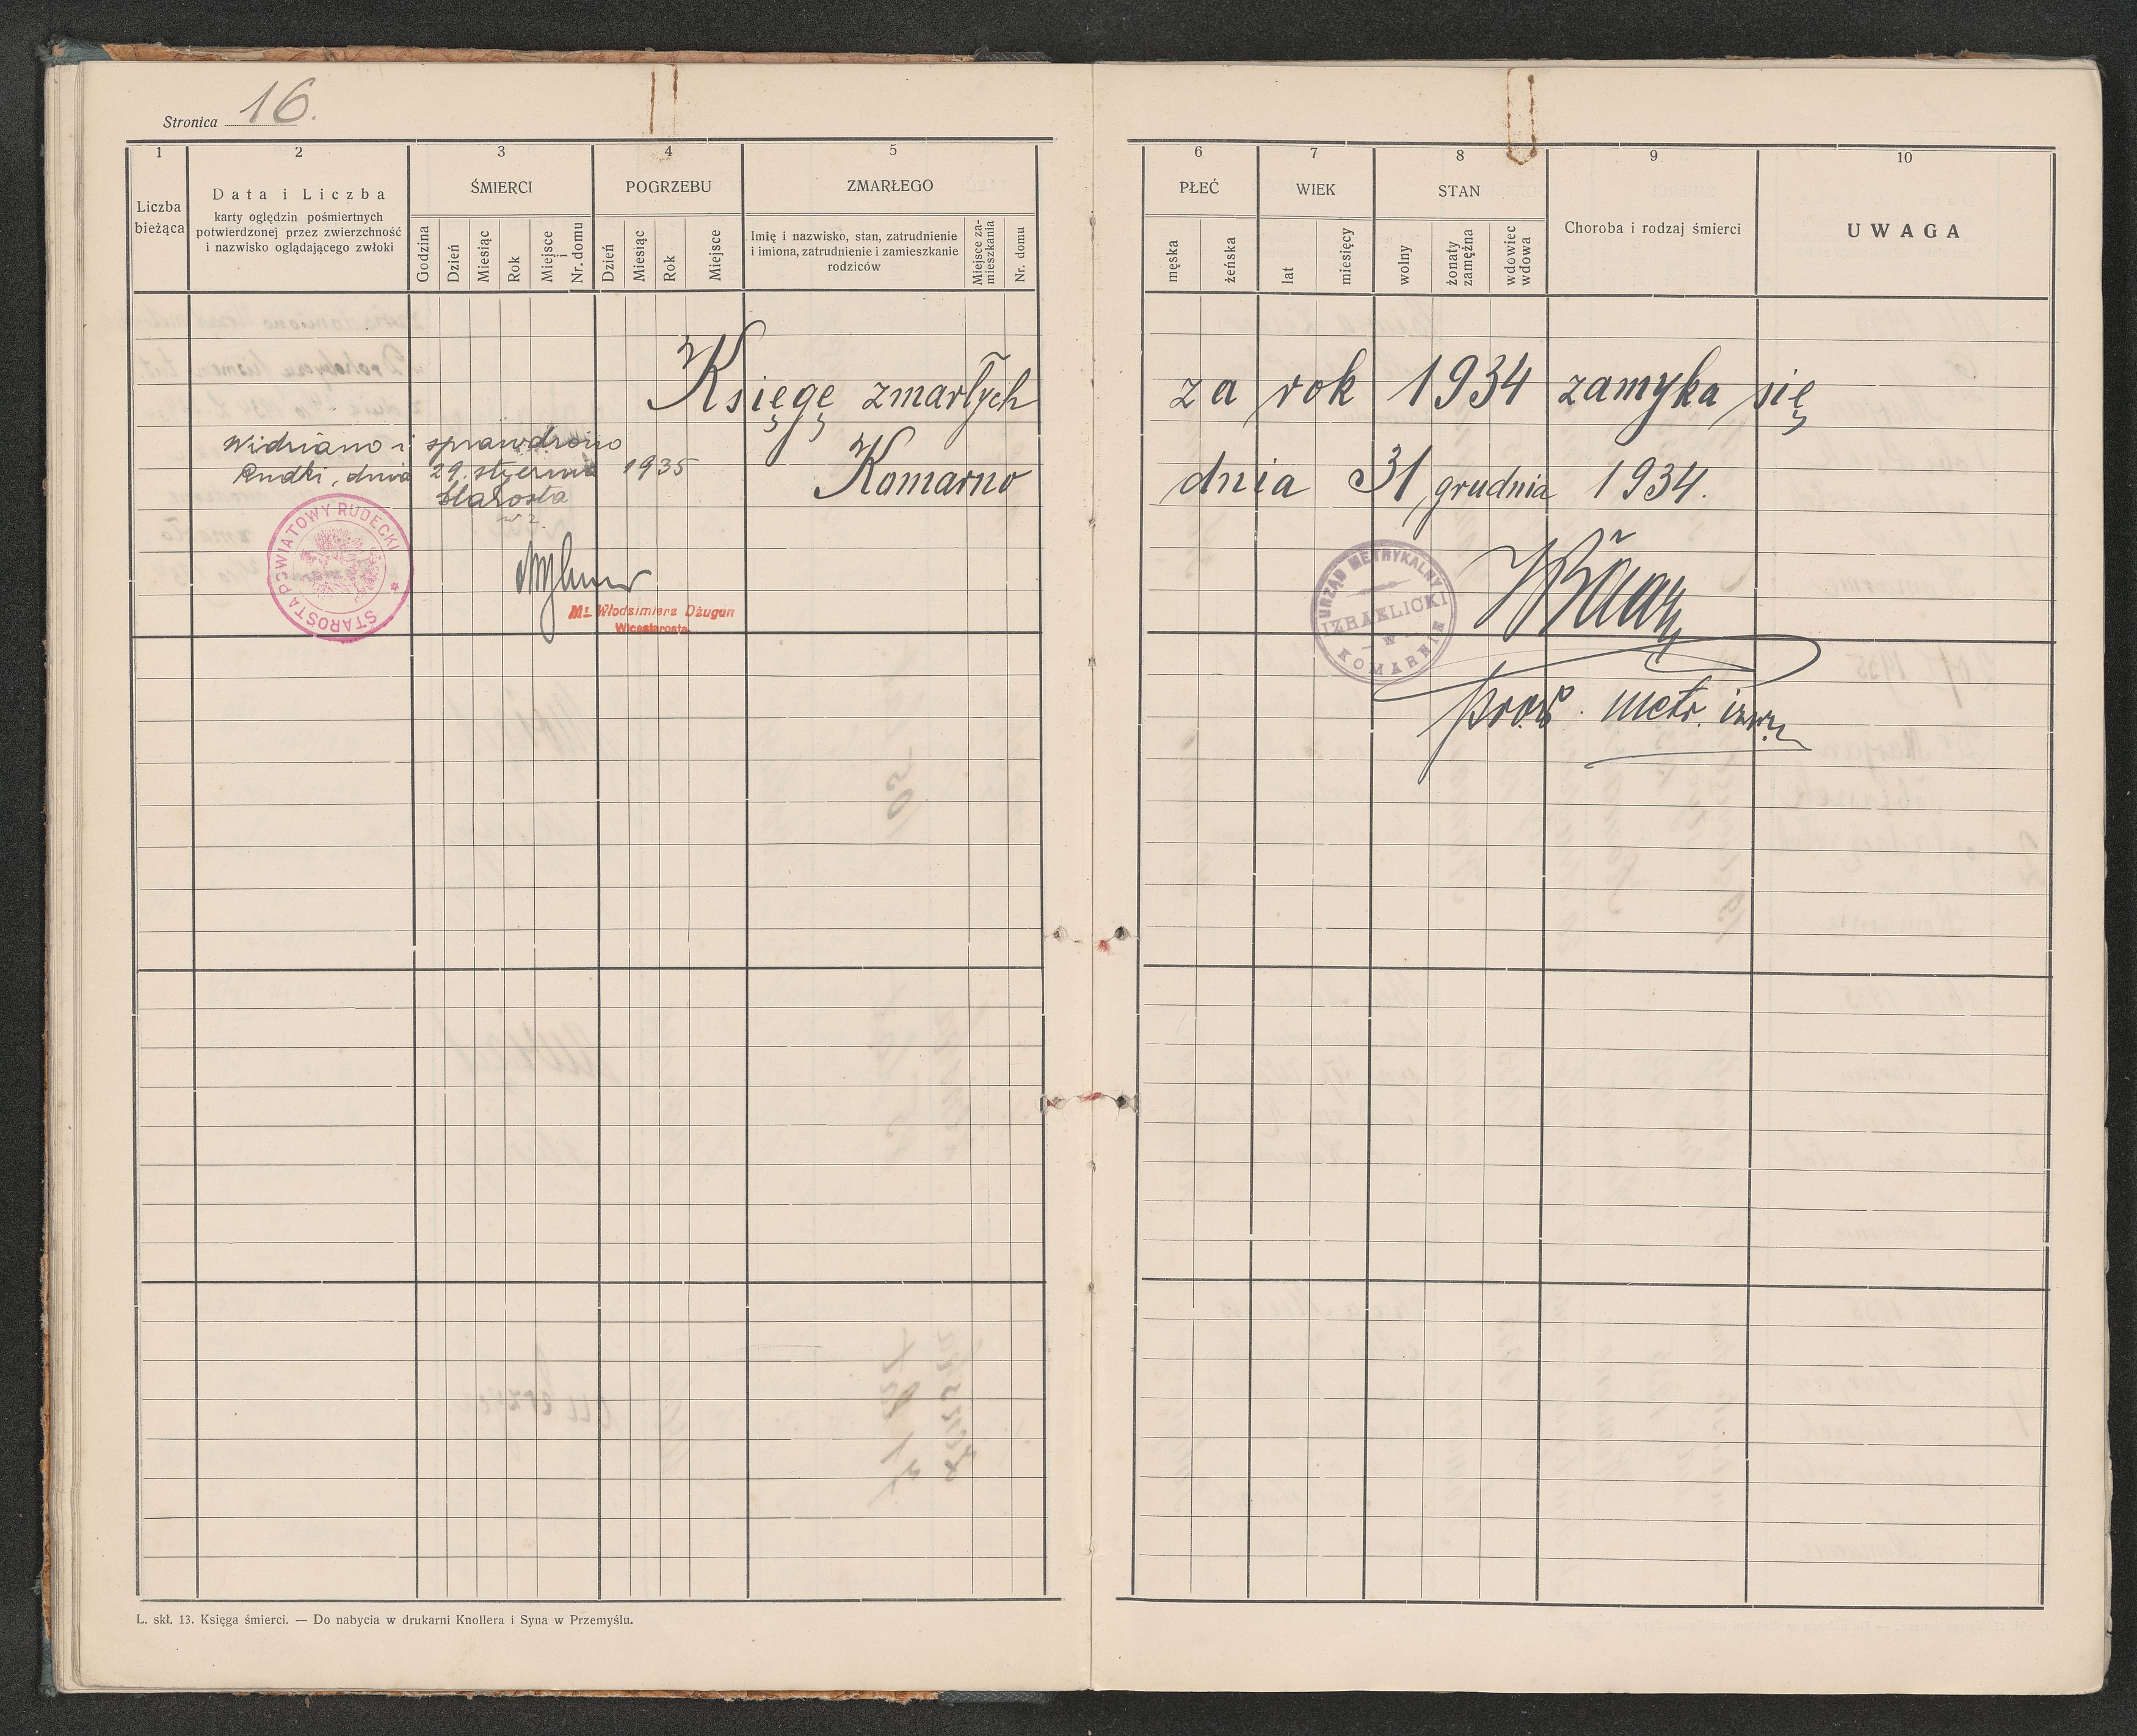 Stronica 16.
1 2 3 4 5
Liczba bieżąca
Data i Liczba
karty oględzin pośmiertnych
potwierdzonej przez zwierzchność
i nazwisko oglądającego zwłoki
ŚMIERCI
Godzina
Dzień
Miesiąc
Rok
Miejsce i Nr. domu
POGRZEBU
Dzień
Miesiąc
Rok
Miejsce
ZMARŁEGO
Imię i nazwisko, stan, zatrudnienie
i imiona, zatrudnienie i zamieszkanie
rodziców
Miejsce za-
mieszkania
Nr. domu
6 7 8 9 10
PŁEĆ
męska
żeńska
WIEK
lat
miesięcy
STAN
wolny
żonaty
zamężna
wdowiec
wdowa
Choroba i rodzaj śmierci
UWAGA
Księgę zmarłych za rok 1934 zamyka się
Komarno dnia 31 grudnia 1934.
Widziano i sprawdzono
Rudki, dnia 29. stycznia 1935
Starosta
w z.
STAROSTA POWIATOWY RUDECKI
Mr Włodzimierz Dżugan
Wicestarosta
URZĄD METRYKALNY
IZRAELICKI
W
KOMARNIE
prow. metr. izr.
L. skł. 13. Księga śmierci. — Do nabycia w drukarni Knollera i Syna w Przemyślu.